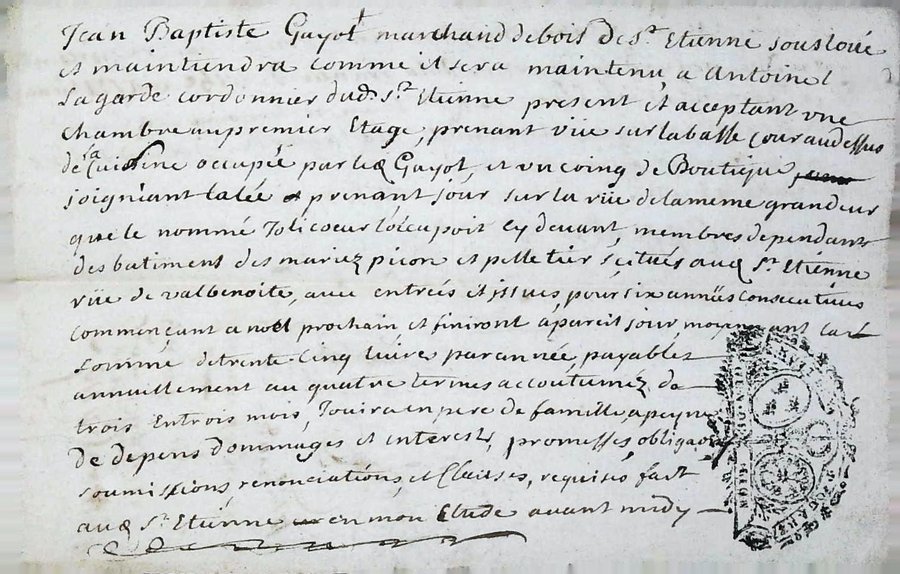 Jean Baptiste Guyot marchand de bois de St Etienne sousloüé
et maintiendra comme il sera maintenu, a Antoine
Lagarde cordonnier dud. St Etienne present et acceptant vne
chambre au premier Etage, prenant vüe sur la basse cour audessus
de la Cuisine occupée par led Guyot, et vn coing de Boutique
joigneant l'alée prenant jour sur la rüe de la meme grandeur
que le nommé Jolicoeur l'occupoit cy devant, membres dependants
des batiment des mariez picon et pelletier scitués aud St Etienne
rüe de valbenoite, avec entrées et issues, pour six années consecutives
commençant a noel prochain et finiront a pareil jour moyennant la
somme de trente cinq livres par année, payables
annuellement au quatre termes accoutumez de
trois En trois mois, Jouira en pere de famille, a peyne
de depens dommages et interests, promesses obligaõn
soumissions, renonciations, et Clauses, requises, fait
aud St Etienne en mon Etude avant midy